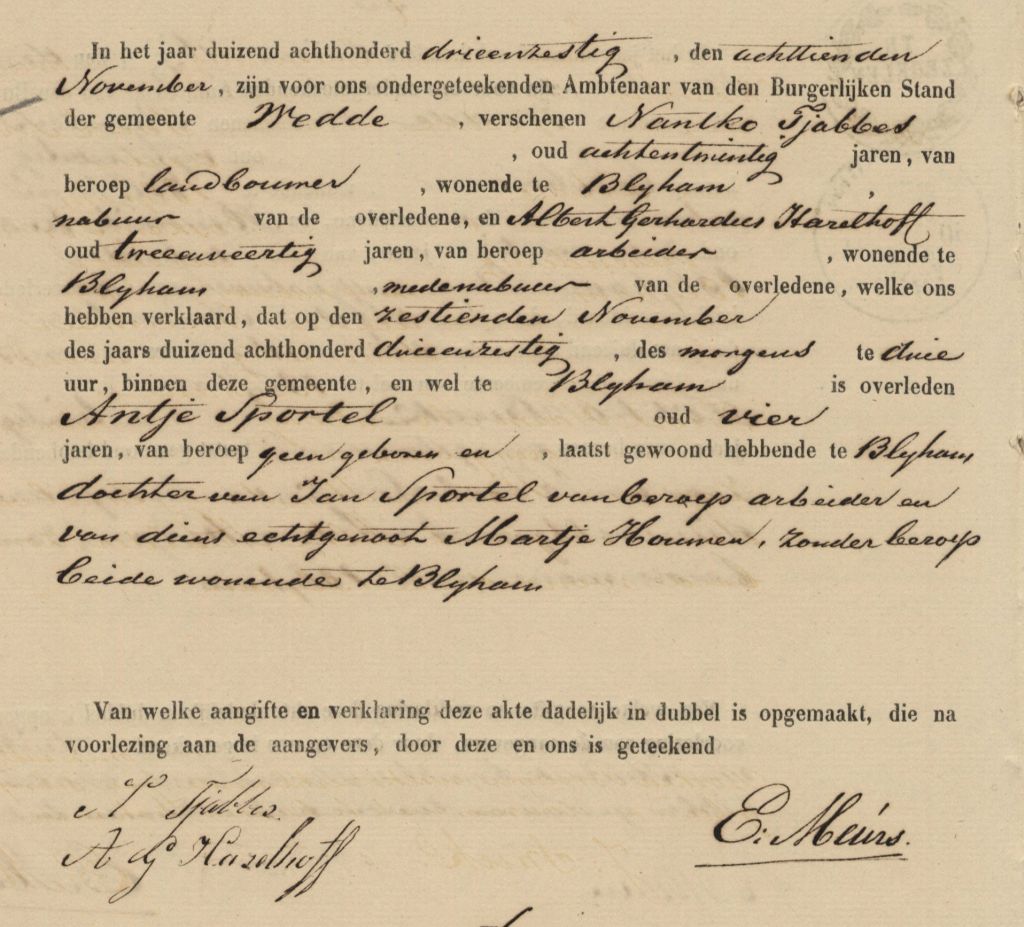 In het jaar duizend achthonderd drieenzestig , den achttienden
November , zijn voor ons ondergeteekenden Ambtenaar van den Burgerlijken Stand
der gemeente Wedde , verschenen Nantko Tjabbes
, oud achtentwintig jaren , van
beroep landbouwer , wonende te Blyham ,
nabuur van de overledene, en Albert Gerhardus Hazelhoff
oud tweeenveertig jaren, van beroep arbeider , wonende te
Blyham , medenabuur van de overledene , welke ons
hebben verklaard, dat op den zestienden November
des jaars duizend achthonderd drieenzestig , des morgens te drie
uur, binnen deze gemeente, en wel te Blyham is overleden
Antje Sportel oud vier
jaren, van beroep geen geboren en , laatst gewoond hebbende te Blyham
dochter van Jan Sportel van beroep arbeider en
van diens echtgenoot Martje Houwen, zonder beroep
beide wonende te Blyham
Van welke aangifte en verklaring deze akte dadelijk in dubbel is opgemaakt, die na
voorlezing aan de aangevers, door deze en ons is geteekend
N Tjabbes.
A G Hazelhoff
E: Meurs.